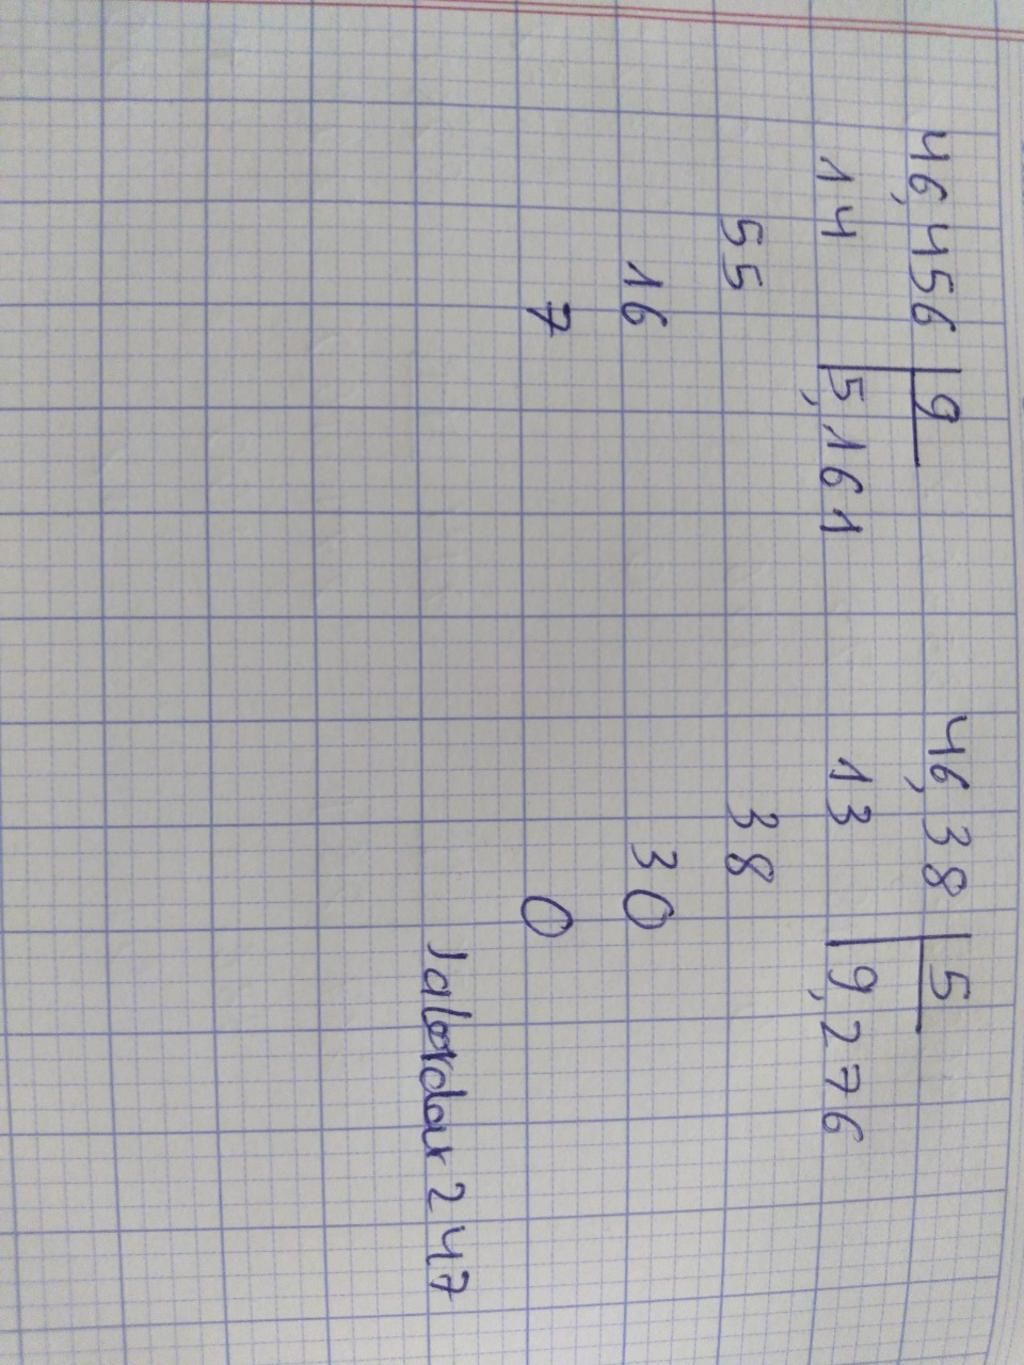 46,456 9
14 5,161
55
16
7
46,38 5
13 9,276
38
30
0